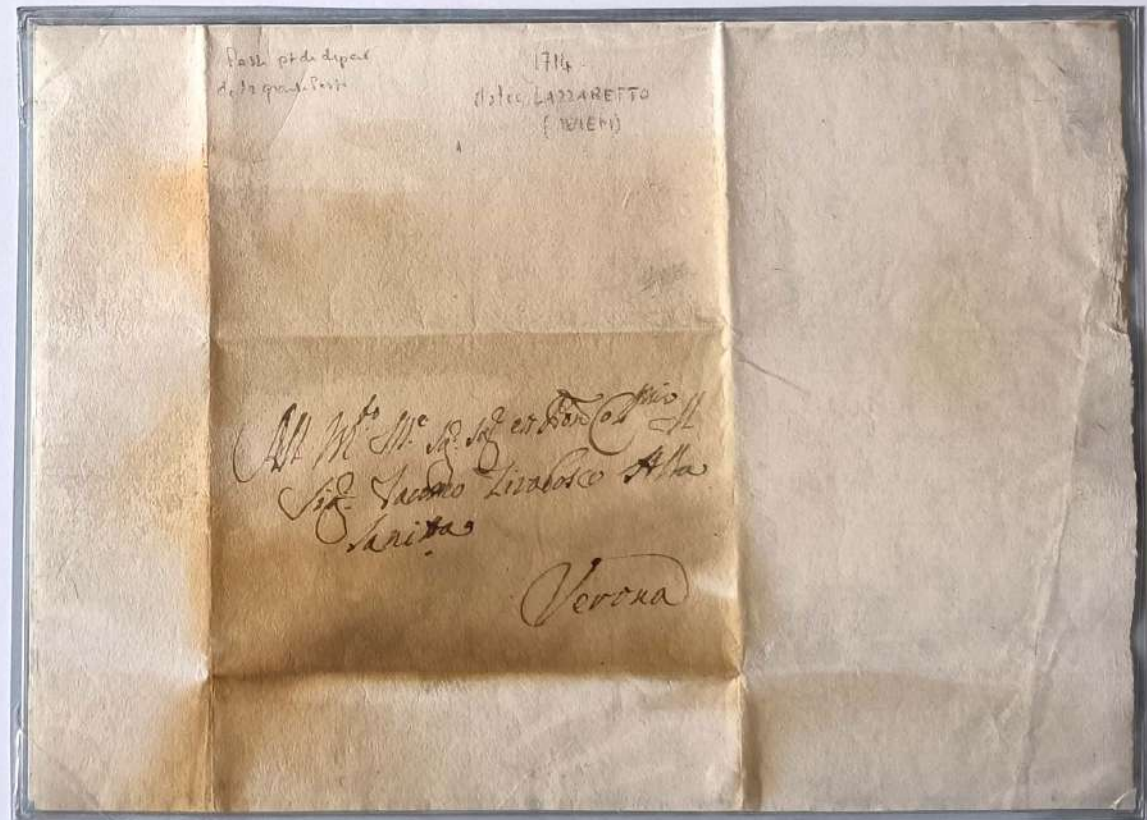 de la grande Peste
1714
LAZZARETTO
All M.to Ill.e Sig. Sig. et Pron Col.mo Il
Sig. Iacomo Tirabosco Alla
Sanitta
Verona